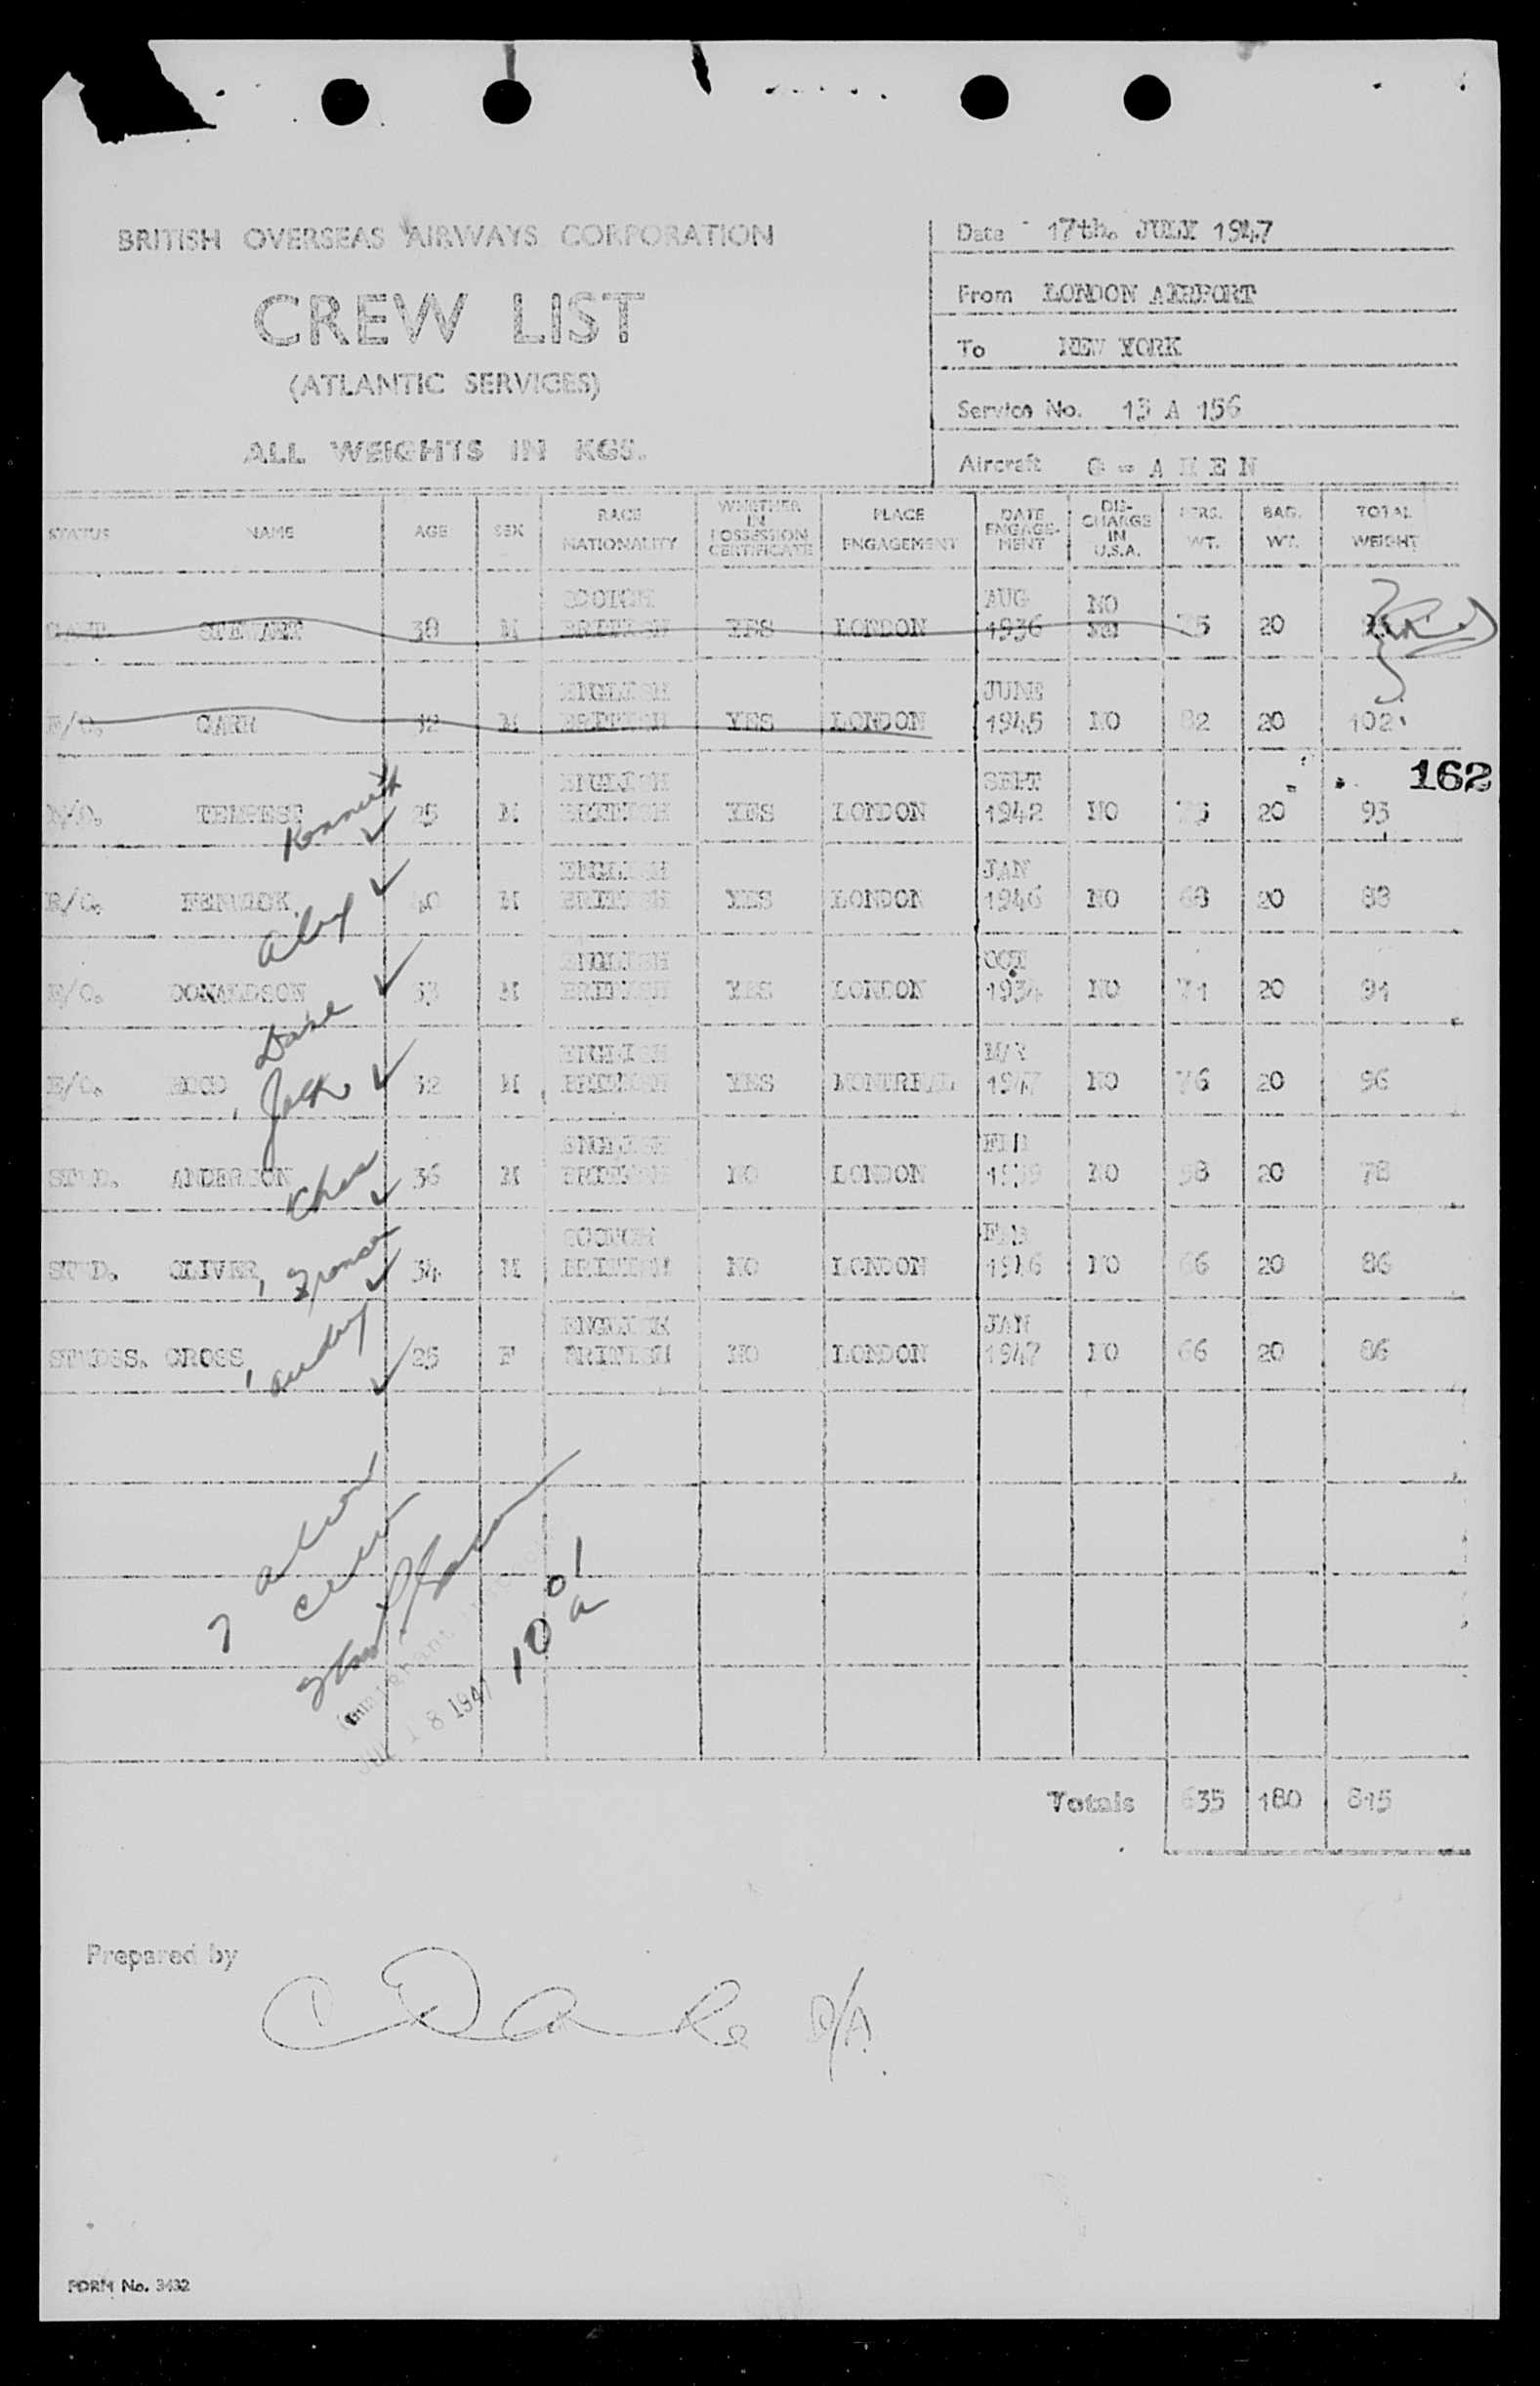 BRITISH OVERSEAS AIRWAYS CORPORATION
CREW LIST
(ATLANTIC SERVICES)
ALL WEIGHTS IN KGS.
Date 17th. JULY 1947
From LONDON AIRPORT
To NEW YORK
Service No. 13 A 156
Aircraft G - A H E N
STATUS NAME AGE SEX RACE NATIONALITY WHETHER IN POSSESSION CERTIFICATE PLACE ENGAGEMENT DATE ENGAGE-MENT DIS-CHARGE IN U.S.A. PERS. WT. BAG. WT. TOTAL WEIGHT
CAPT. STEWART 38 M SCOTCH BRITISH YES LONDON AUG 1936 NO 75 20
F/O. CARR 32 M ENGLISH BRITISH YES LONDON JUNE 1945 NO 82 20 102
162
N/O. TEMPEST Kenneth 25 M ENGLISH BRITISH YES LONDON SEPT 1942 NO 75 20 95
R/O. FENWICK 40 M ENGLISH BRITISH YES LONDON JAN 1946 NO 68 20 88
E/O. DONALDSON 33 M ENGLISH BRITISH YES LONDON OCT 1934 NO 71 20 91
E/O. HOOD, Jack 32 M ENGLISH BRITISH YES MONTREAL 1947 NO 76 20 96
STWD. ANDERSON Chas 36 M ENGLISH BRITISH NO LONDON FEB 1939 NO 58 20 78
STWD. OLIVER, 34 M SCOTCH BRITISH NO LONDON FEB 1946 NO 66 20 86
STWDSS. CROSS, Audrey 25 F ENGLISH BRITISH NO LONDON JAN 1947 NO 66 20 86
7 alien
crew
Immigrant Inspector
JUL 18 1947
10 01 a
Totals 635 180 815
Prepared by
FORM No. 3432